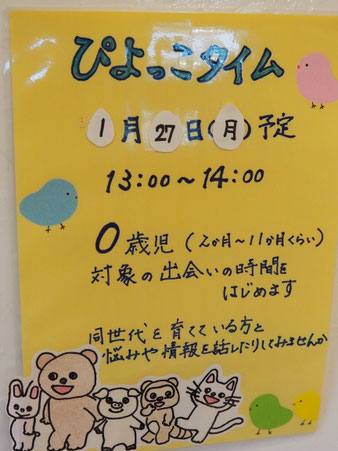 ぴよっこタイム
1月27日(月)予定
13:00~14:00
0歳児(2か月~11か月くらい)
対象の出会いの時間を
はじめます
同世代を育てている方と
悩みや情報を話したりしてみませんか